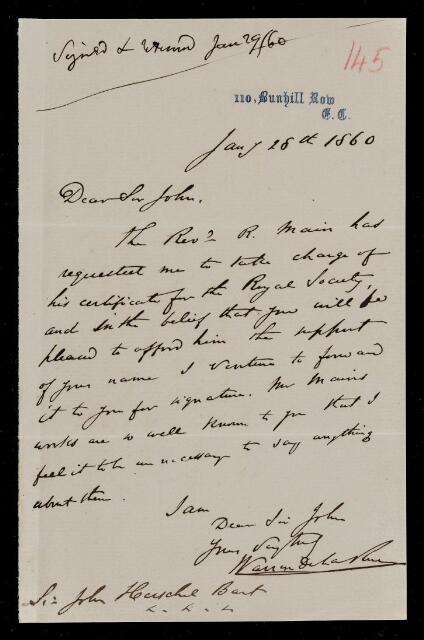 Signed & Returnd Jan 29/60
145
110, Bunhill Row
E. C.
Jany 28th 1860
Dear Sir John,
The Revd R. Main has
requested me to take charge of
his certificate for the Royal Society,
and in the belief that you will be
pleased to afford him the support
of your name I venture to forward
it to you for signature. Mr Main's
works are so well known to you that I
feel it to be unnecessary to say anything
about them.
I am
Dear Sir John
Yours
Warren De la Rue
Sir John Herschel Bart